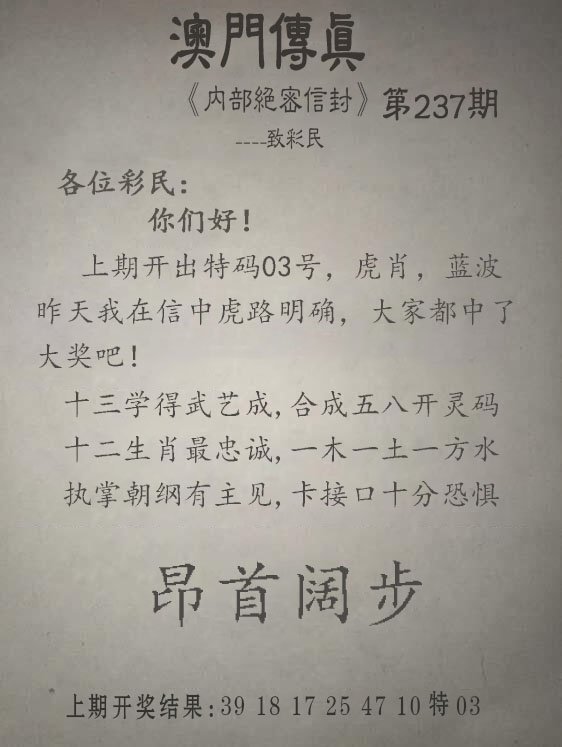 澳門傳真
《内部絕密信封》第237期
----致彩民
各位彩民：
你们好！
上期开出特码03号，虎肖，蓝波
昨天我在信中虎路明确，大家都中了
大奖吧！
十三学得武艺成,合成五八开灵码
十二生肖最忠诚,一木一土一方水
执掌朝纲有主见,卡接口十分恐惧
昂首阔步
上期开奖结果:39 18 17 25 47 10 特 03